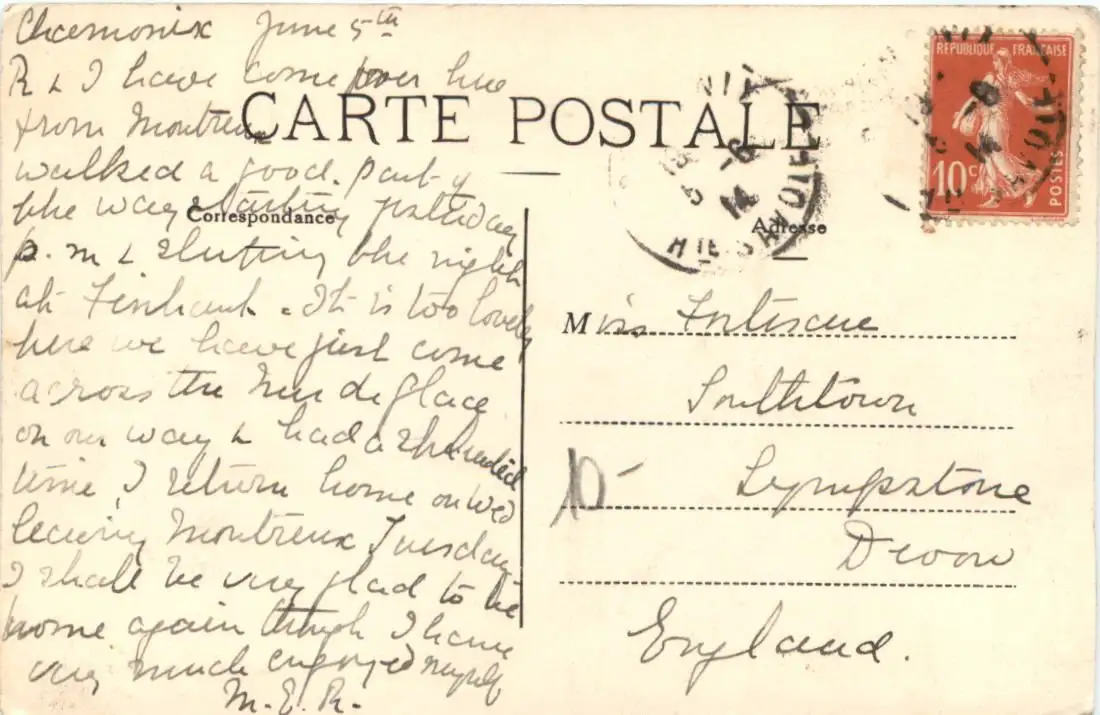 Chamonix June 5th
R & I have come over here
from Montreux
walked a good part of
the way starting yesterday
p.m & sleeping the night
at Finhaut. It is too lovely
here we have just come
across the Mer de glace
on our way & had a splendid
time, I return home on Wed
leaving Montreux Tuesday
I shall be very glad to be
home again though I have
very much enjoyed myself
M.E.R.
CARTE POSTALE
Correspondance
Adresse
REPUBLIQUE FRANÇAISE
10c
POSTES
5 -6
14
HTE SAVOIE
Miss Fortescue
Southtown
Lympstone
Devon
England.
10-